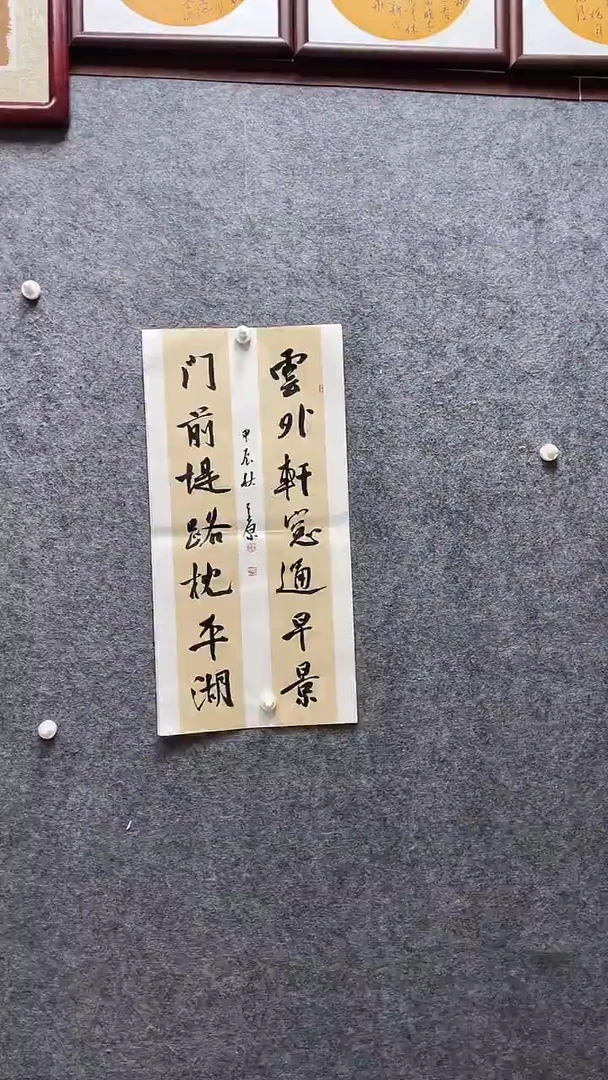 雲外軒窓通早景
门前堤路枕平湖
甲辰秋